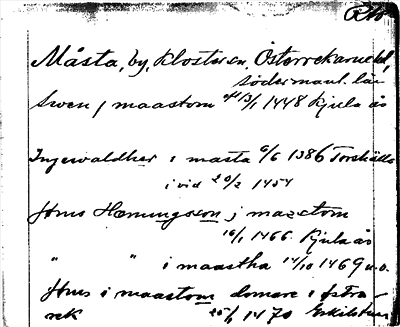 Måsta, by, Kloster sn, Österrekarne hd,
Södermanl. län
Swen j maastom 13/1 1448 Kjula ås
Ingewaldher i masta 6/6 1386 Torshälla
i vid 20/2 1454
Jöns Hemingsson j maastom
16/1 1466. Kjula ås
" " i maastha 14/10 1469 u.o.
Jöns i maastom domare i østra
rek 25/1 1470 Eskilstuna